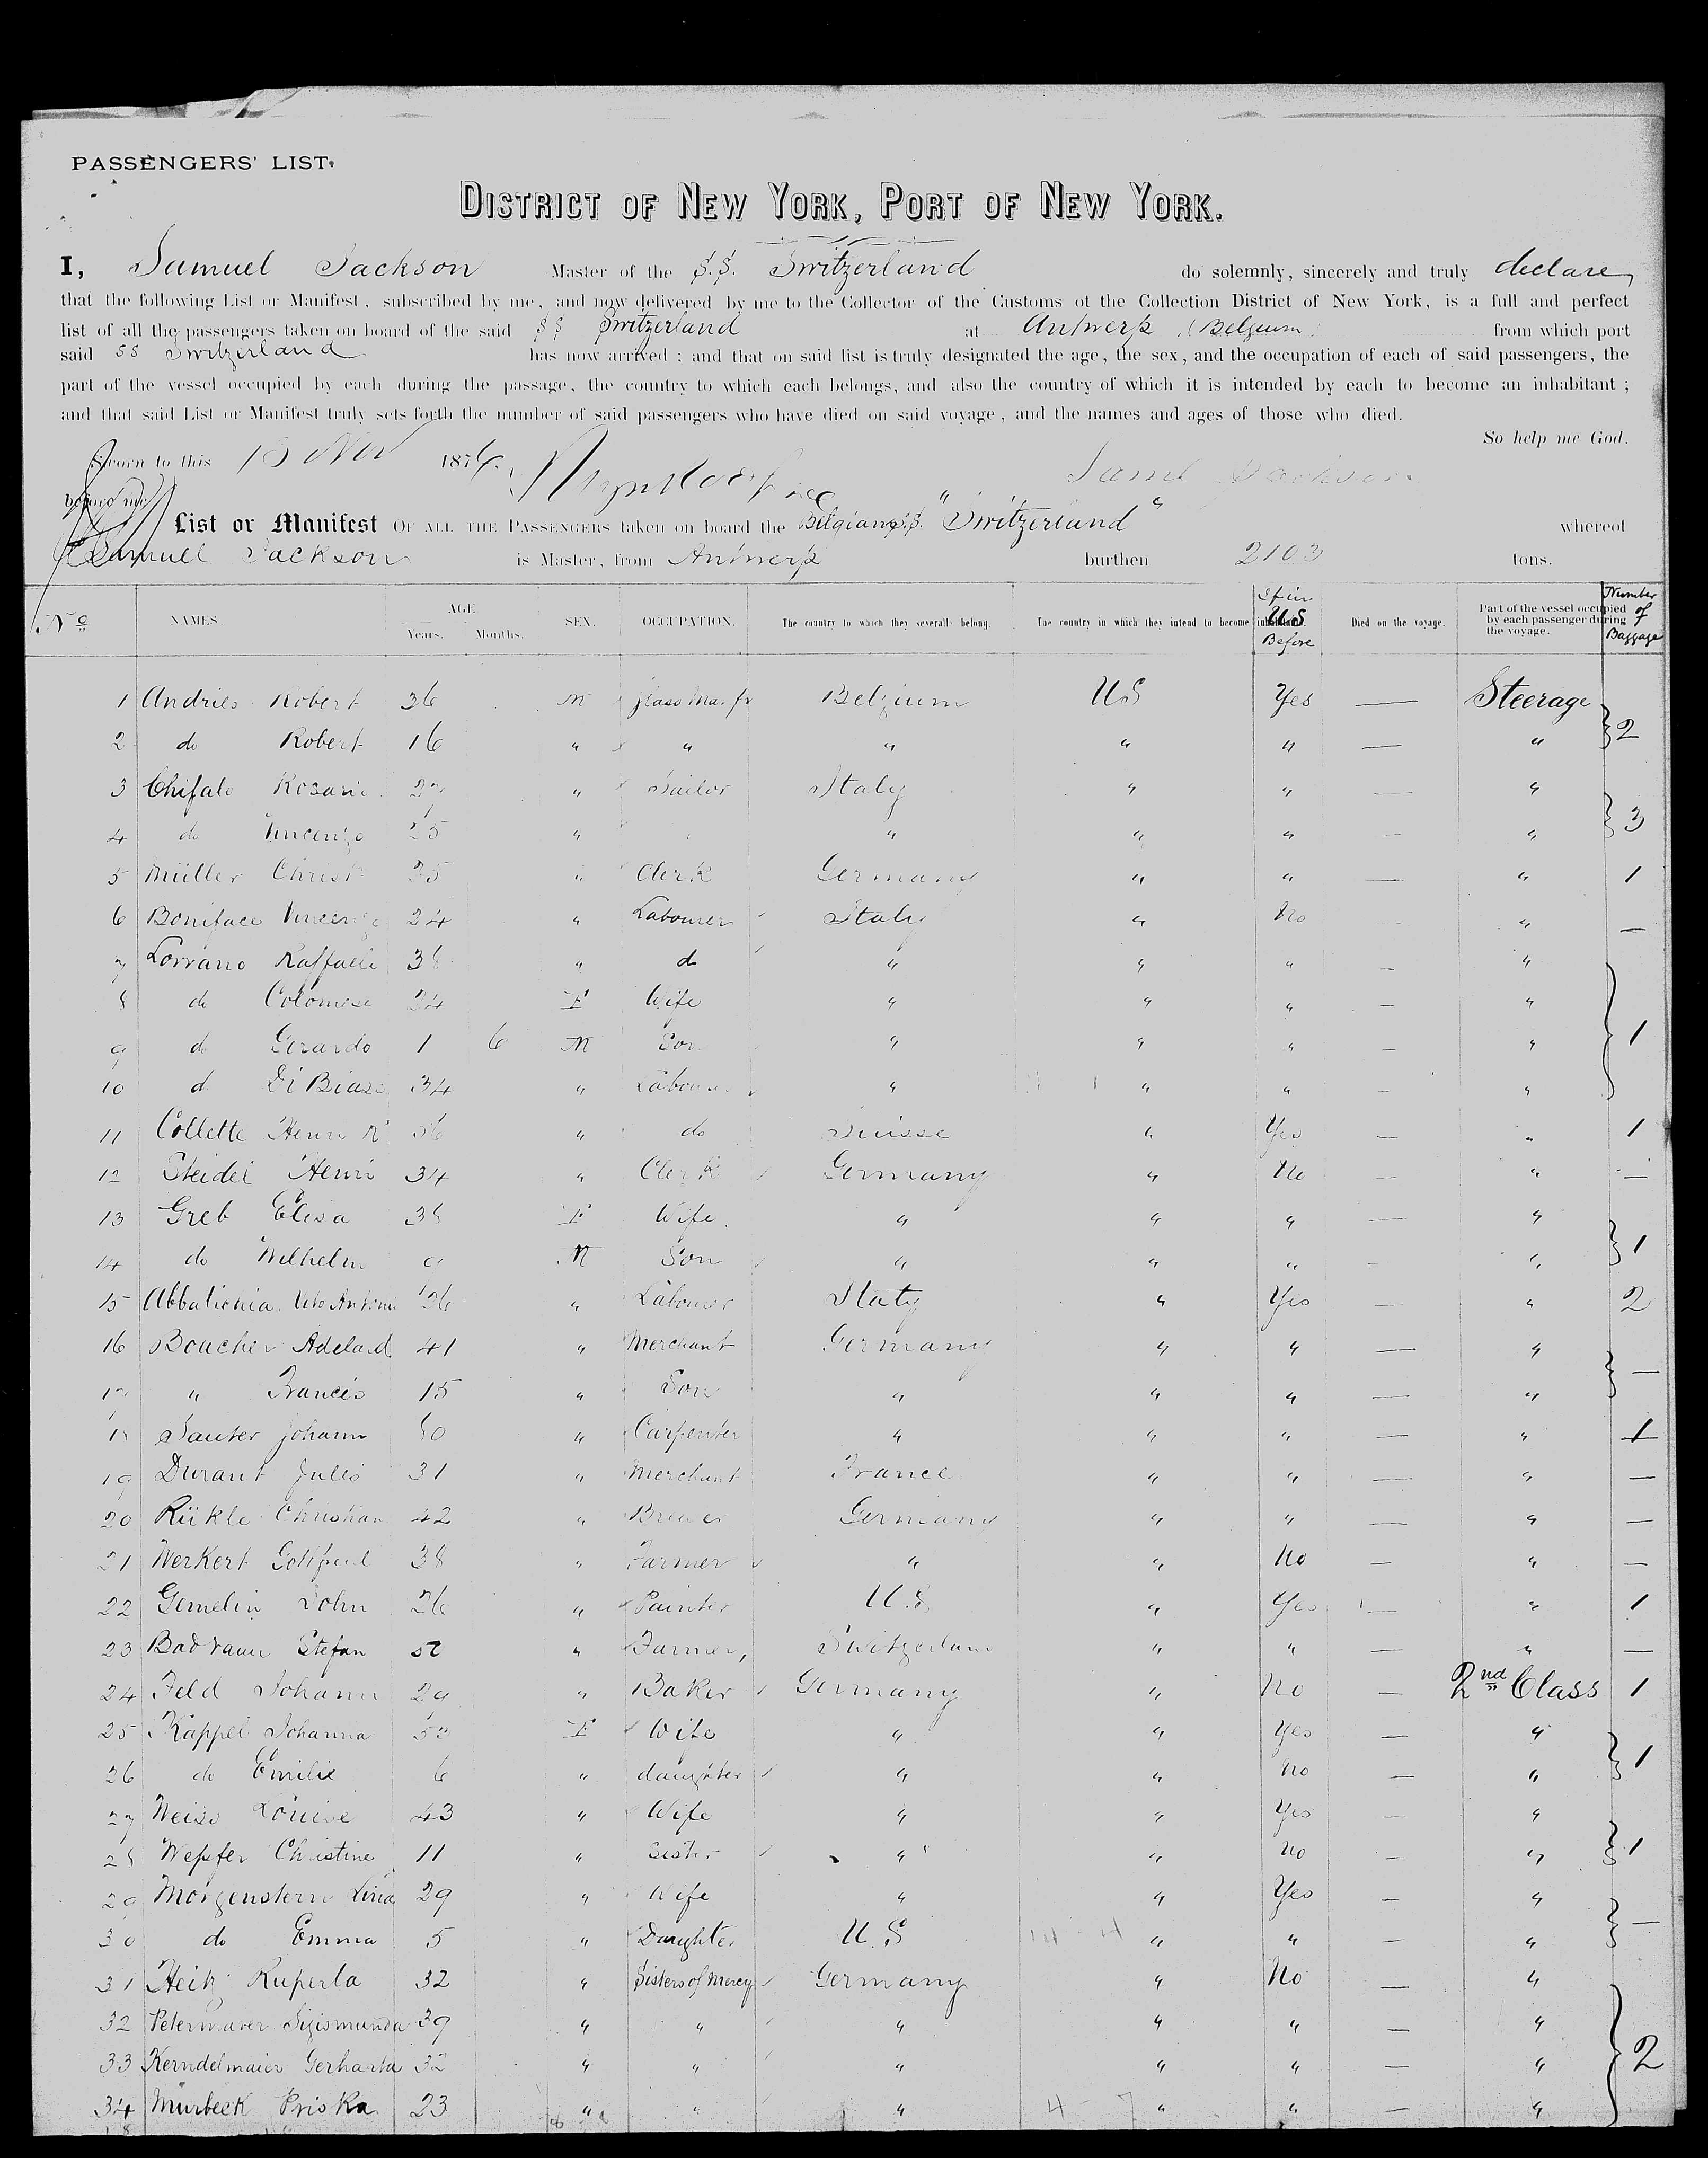 PASSENGERS' LIST.
DISTRICT OF NEW YORK, PORT OF NEW YORK.
I, Samuel Jackson Master of the S.S. Switzerland do solemnly, sincerely and truly declare
that the following List or Manifest, subscribed by me, and now delivered by me to the Collector of the Customs of the Collection District of New York, is a full and perfect
list of all the passengers taken on board of the said SS Switzerland at Antwerp (Belgium) from which port
said SS Switzerland has now arrived ; and that on said list is truly designated the age, the sex, and the occupation of each of said passengers, the
part of the vessel occupied by each during the passage, the country to which each belongs, and also the country of which it is intended by each to become an inhabitant ;
and that said List or Manifest truly sets forth the number of said passengers who have died on said voyage, and the names and ages of those who died.
So help me God.
Sworn to this Nov 187 Saml Jackson
before me
List or Manifest OF ALL THE PASSENGERS taken on board the Belgian S.S. "Switzerland" whereof
Samuel Jackson is Master, from Antwerp burthen 2103 tons.
No NAMES. AGE Years. Months. SEX. OCCUPATION. The country to which they severally belong. The country in which they intend to become inhabitants. If in U.S. Before Died on the voyage. Part of the vessel occupied by each passenger during the voyage. Number of Baggage
1 Andries Robert 36 M Glass Ma.fr Belgium US Yes — Steerage
2 do Robert 16 " " " " " — " 2
3 Chifalo Rosario 27 " Sailor Italy " " — "
4 do Vincenzo 25 " " " " — " 3
5 Müller Christ 25 " Clerk Germany " " — " 1
6 Boniface Vincenzo 24 " Labourer Italy " No — " —
7 Lorrano Raffaele 38 " do " " " — "
8 do Colomese 24 F Wife " " " — "
9 do Gerardo 1 6 M Son " " " — " 1
10 d Di Biase 34 " Labourer " " " — "
11 Collette Henri " do Suisse " Yes — " 1
12 Steidel Henri 34 " Clerk Germany " No — " —
13 Greb Elisa 38 F Wife " " " — "
14 do Wilhelm 9 M Son " " " — " 1
15 Abbationia Vito Antonio 36 " Labourer Italy " Yes — " 2
16 Boucher Adelard 41 " Merchant Germany " " — "
17 " Francis 15 " Son " " " — " —
18 Sauter Johann " Carpenter " " " — " 1
19 Durant Jules 31 " Merchant France " " — " —
20 Rükle Christian 42 " Brewer Germany " " — " —
21 Werkert Gottfried 38 " Farmer " " No — " —
22 Gemelin John 26 " Painter U.S " Yes — " 1
23 Stefan " Farmer, Switzerland " " — " —
24 Feld Johann 29 " Baker Germany " No — 2nd Class 1
25 Kappel Johanna F Wife " " Yes — "
26 do Emilie 6 " daughter " " No — " 1
27 Weiss Louise 43 " Wife " " Yes — "
28 Wepfer Christine 11 " Sister " " No — " 1
29 Morgenstern Lina 29 " Wife " " Yes — "
30 do Emma 5 " Daughter U.S " " — " —
31 Heik Ruperta 32 " Sisters of Mercy Germany " No — "
32 Petermaier Sigismunda 39 " " " " " — "
33 Kerndelmaier Gerharta 32 " " " " " — " 2
34 Mürbeck Priska 23 " " " " " — "